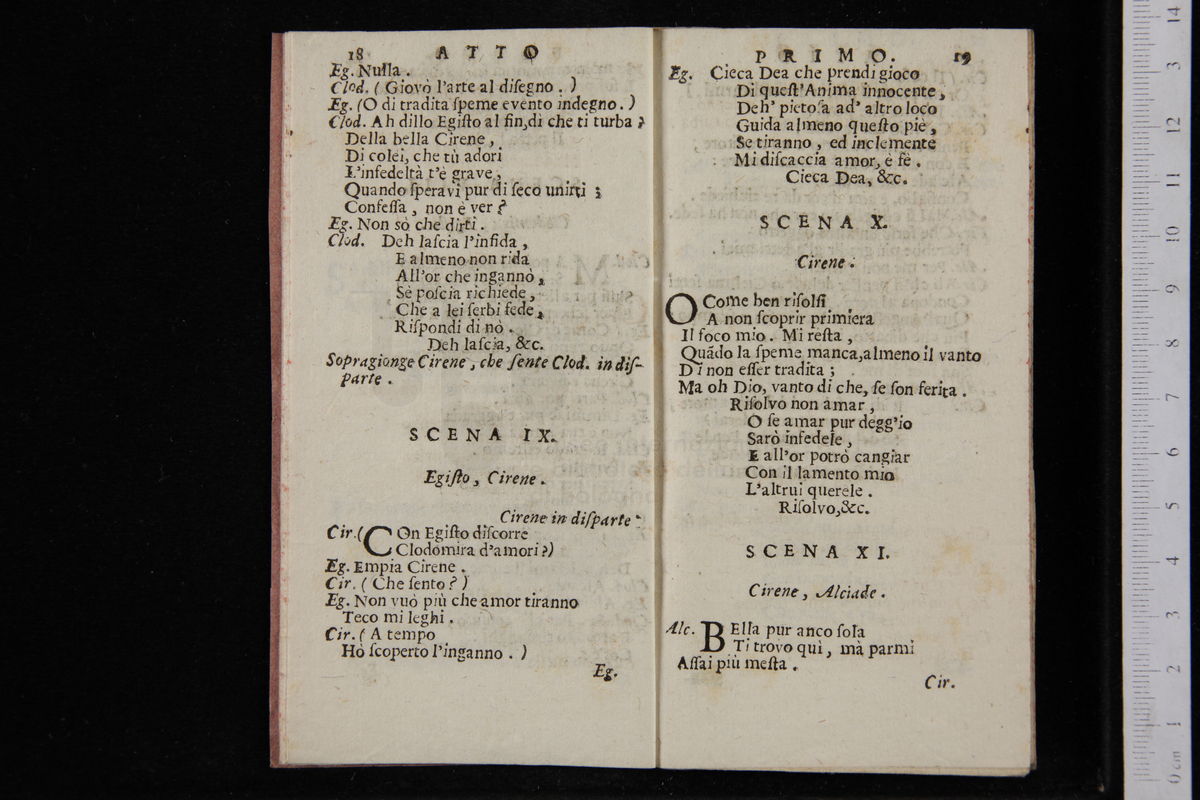 18 ATTO
Eg. Nulla.
Clod. ( Giovò l'arte al diſegno. )
Eg. (O di tradita ſpeme evento indegno. )
Clod. Ah dillo Egiſto al fin, di che ti turba?
Della bella Cirene,
Di colei, che tù adori
L'infedeltà t'è grave,
Quando ſperavi pur di ſeco unirti;
Confeſſa, non è ver?
Eg. Non sò che dirti.
Clod. Deh laſcia l'infida,
E almeno non rida
All'or che ingannò,
Sè poſcia richiede,
Che a lei ſerbi fede,
Riſpondi di nò.
Deh laſcia, &c.
Sopragionge Cirene, che ſente Clod. in diſ-
parte.
SCENA IX.
Egiſto, Cirene.
Cirene in diſparte.
Cir. (COn Egiſto diſcorre
Clodomira d'amori?)
Eg. Empia Cirene.
Cir. ( Che ſento? )
Eg. Non vuò più che amor tiranno
Teco mi leghi.
Cir. ( A tempo
Hò ſcoperto l'inganno. )
Eg.
PRIMO. 19
Eg. Cieca Dea che prendi gioco
Di queſt'Anima innocente,
Deh' pietoſa ad' altro loco
Guida almeno queſto piè,
Se tiranno, ed inclemente
Mi diſcaccia amor, e fè.
Cieca Dea, &c.
SCENA X.
Cirene.
O Come ben riſolſi
A non ſcoprir primiera
Il foco mio. Mi reſta,
Quãdo la ſpeme manca, almeno il vanto
Di non eſſer tradita;
Ma oh Dio, vanto di che, ſe ſon ferita.
Riſolvo non amar,
O ſe amar pur degg'io
Sarò infedele,
E all'or potrò cangiar
Con il lamento mio
L'altrui querele.
Riſolvo, &c.
SCENA XI.
Cirene, Alciade.
Alc. BElla pur anco ſola
Ti trovo quì, mà parmi
Aſſai più meſta.
Cir.
0 cm 1 2 3 4 5 6 7 8 9 10 11 12 3 14